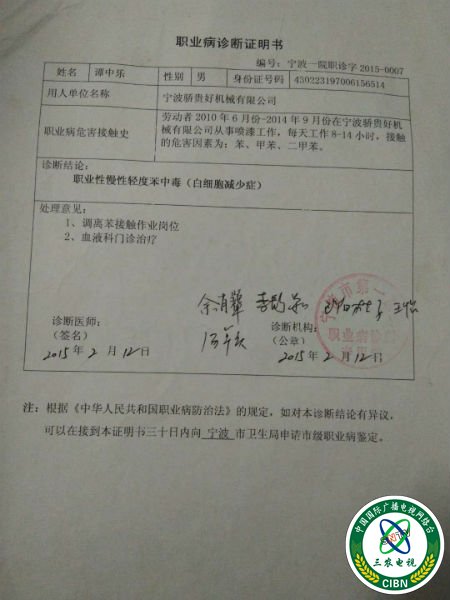 职业病诊断证明书
编号：宁波一院职诊字 2015-0007
姓名 谭中乐 性别 男 身份证号码 450223197006156514
用人单位名称 宁波骄贵好机械有限公司
职业病危害接触史
劳动者 2010 年 6 月份-2014 年 9 月份在宁波骄贵好机
械有限公司从事喷漆工作，每天工作 8-14 小时，接触
的危害因素为：苯、甲苯、二甲苯。
诊断结论：
职业性慢性轻度苯中毒（白细胞减少症）
处理意见：
1、调离苯接触作业岗位
2、血液科门诊治疗
诊断医师：
（签名）
2015 年 2 月 12 日
诊断机构：
（公章）
2015 年 2 月 12 日
宁波市第一
职业病诊
注：根据《中华人民共和国职业病防治法》的规定，如对本诊断结论有异议，
可以在接到本证明书三十日内向 宁波 市卫生局申请市级职业病鉴定。
中国国际广播电视网络台
三农电视
CIBN